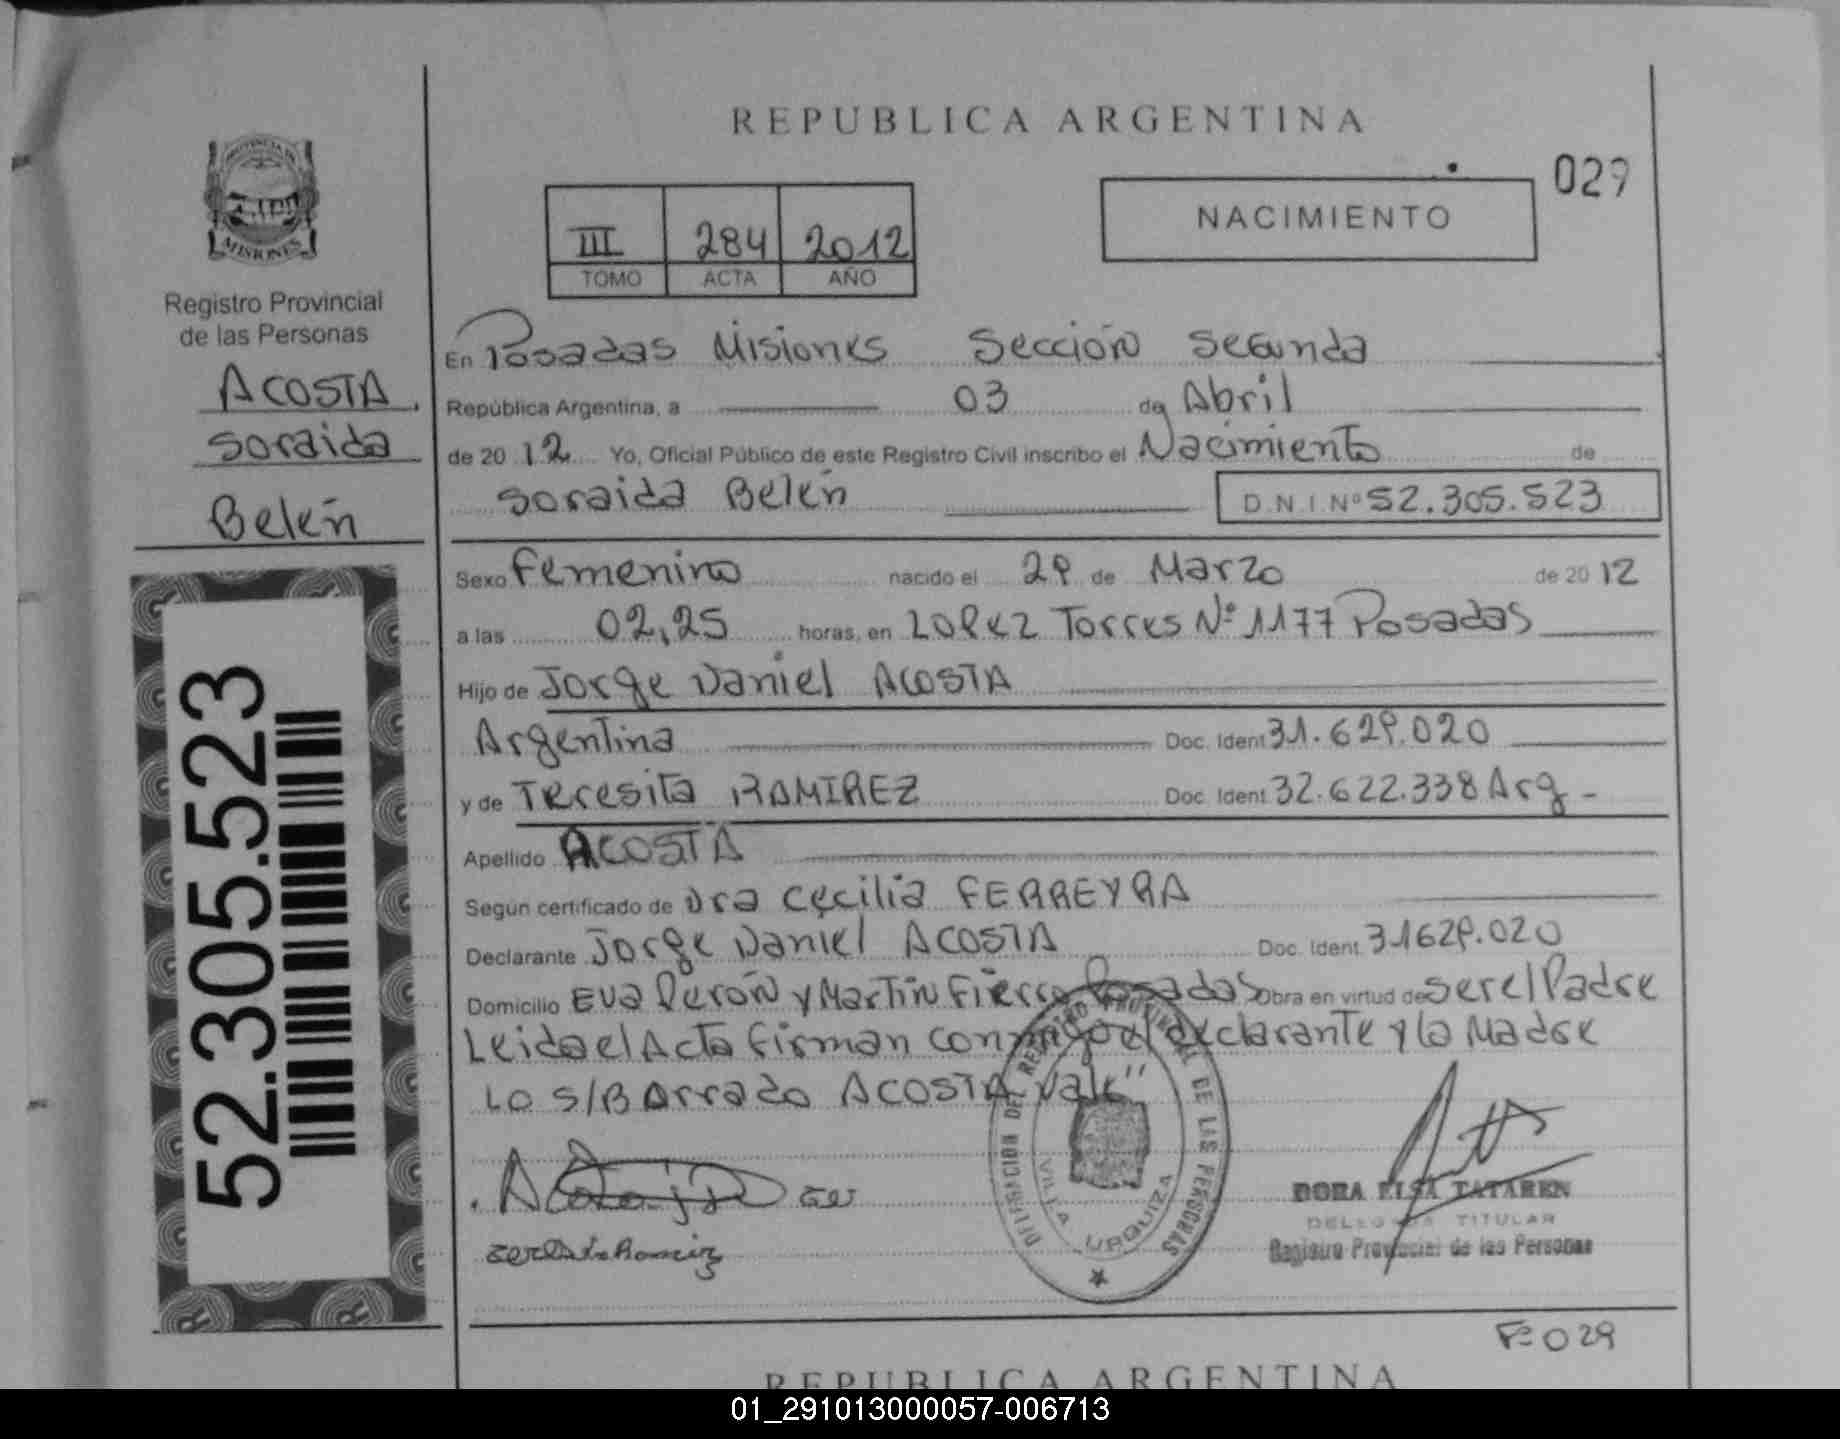 REPUBLICA ARGENTINA
029
NACIMIENTO
III 284 2012
TOMO ACTA AÑO
PROVINCIA DE
MISIONES
Registro Provincial
de las Personas
ACOSTA,
Soraida
Belén
52.305.523
En Posadas Misiones Sección Segunda
República Argentina, a 03 de Abril
de 20 12 Yo, Oficial Público de este Registro Civil inscribo el Nacimiento de
Soraida Belén D.N.I. Nº 52.305.523
Sexo Femenino nacido el 29 de Marzo de 20 12
a las 02,25 horas, en LOPEZ Torres Nº 1177 Posadas
Hijo de Jorge Daniel ACOSTA
Argentina Doc. Ident 31.629.020
y de Teresita RAMIREZ Doc. Ident 32.622.338 Arg -
Apellido ACOSTA
Según certificado de Dra Cecilia FERREYRA
Declarante Jorge Daniel ACOSTA Doc. Ident. 31629.020
Domicilio Eva Perón y Martín Fierro Posadas Obra en virtud de ser el Padre
Leida el Acta firman conmigo el declarante y la Madre
Lo S/BOrrado ACOSTA Vale"
DELEGACION DEL REGISTRO PROVINCIAL DE LAS PERSONAS
VILLA URQUIZA
DORA ELSA TATAREN
DELEGADA TITULAR
Registro Provincial de las Personas
Fº 029
REPUBLICA ARGENTINA
01_291013000057-006713